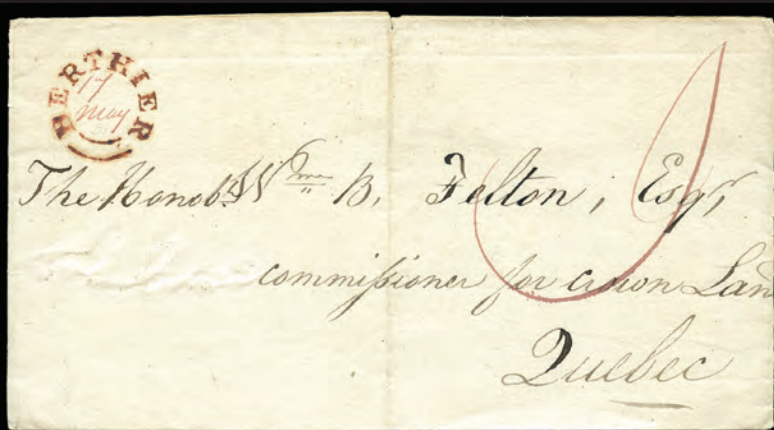 BERTHIER
17
May
The Honobl. Wm B. Felton, Esqr,
commissioner for crown Lan
Quebec